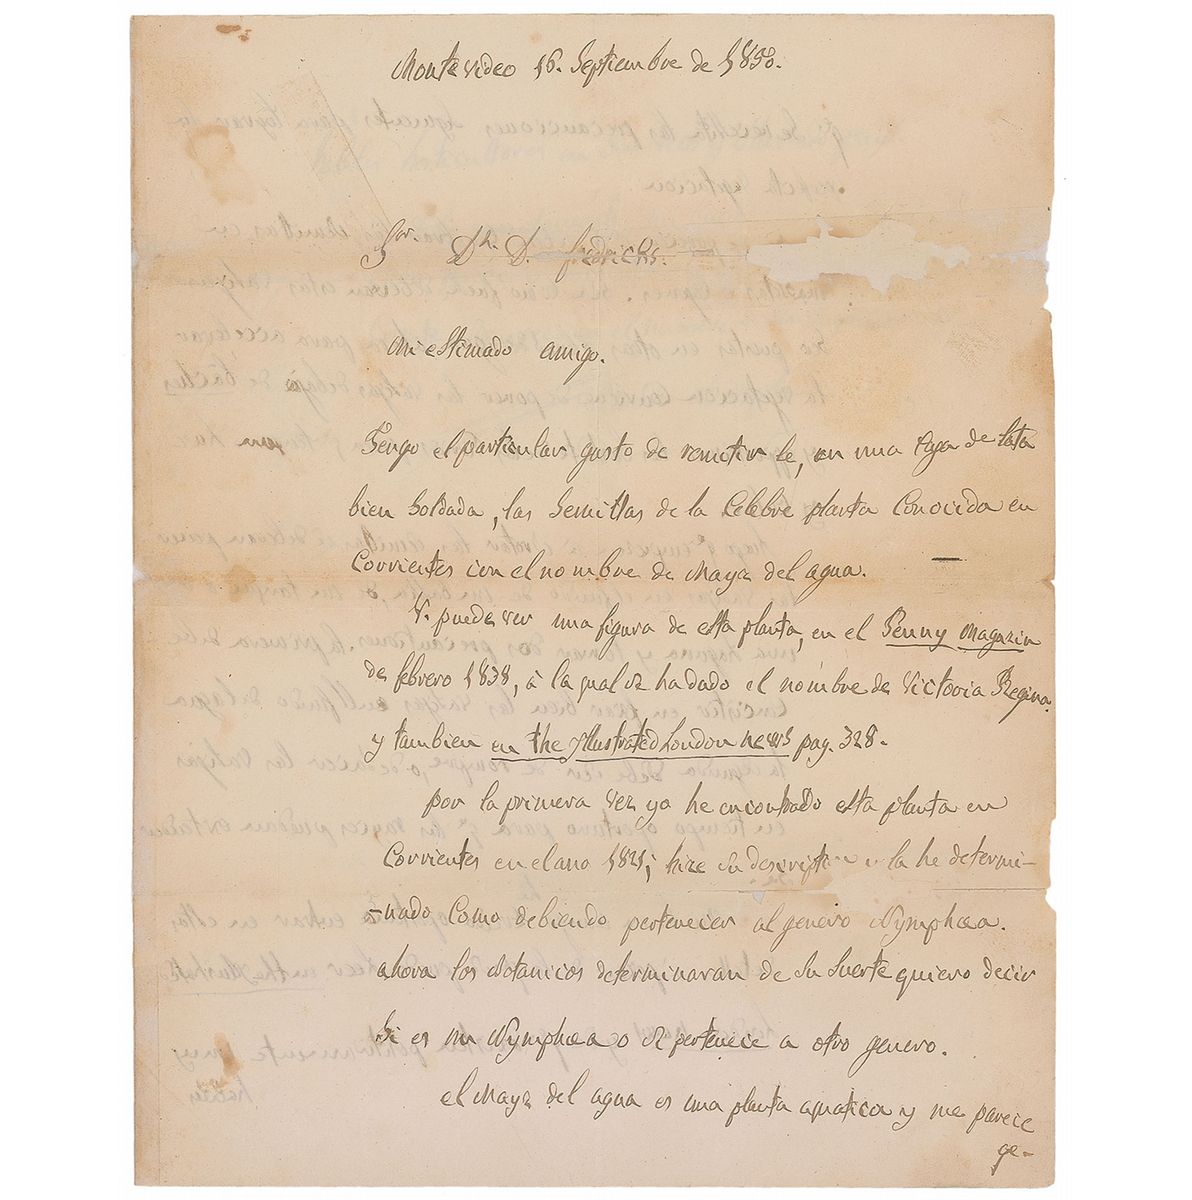 Montevideo 16. Septiembre de 1850.
Sor. Dn. D. fridrichs.
Mi estimado amigo.
Tengo el particular gusto de remitir le, en una Caja de lata
bien Soldada, las Semillas de la Celebre planta Conocida en
Corrientes con el nombre de Mayz del agua.
V. puede ver una figura de esta planta, en el Penny Magazin
de febrero 1838, á la qual se ha dado el nombre de Victoria Regina
y tambien en the Yllustrated London news pag. 328.
por la primera vez yo he encontrado esta planta en
Corrientes en el ano 1821; hize su description y la he determi-
-nado Como debiendo pertenecer al genero Nymphæa.
ahora los Botanicos determinaran de Su Suerte quiero decir
Si es una Nymphæa o se pertenece a otro genero.
el Mayz del agua es una planta aquatica y me parece
qe-